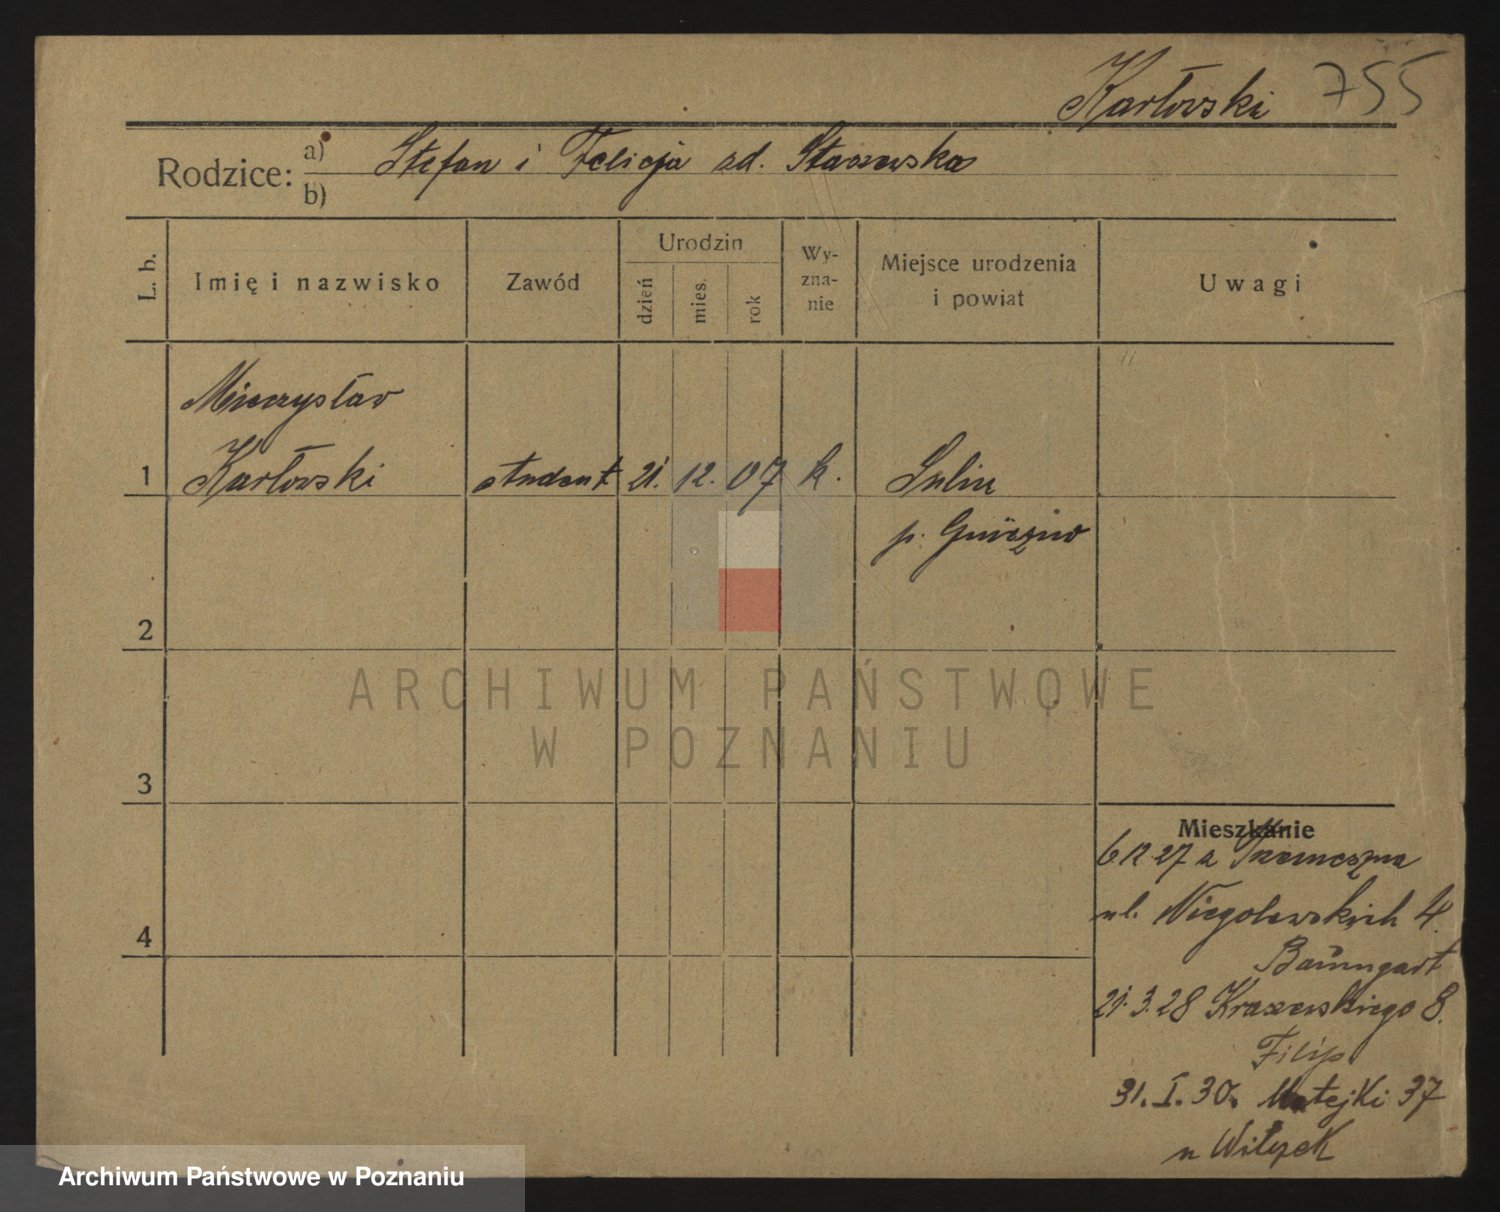 Karłowski 755
Rodzice: a) b) Stefan i Felicja zd. Staszewska
L. b.
Imię i nazwisko
Zawód
Urodzin
dzień
mies.
rok
Wy-
zna-
nie
Miejsce urodzenia
i powiat
Uwagi
Mieczysław
1 Karłowski student 21. 12. 07 k. Sulin
p. Gniezno
2
ARCHIWUM PAŃSTWOWE
W POZNANIU
3
Mieszkanie
6 12 27 z Trzemeszna
ul. Niegolewskich 4.
4
Baumgart
21.3.28 Kraszewskiego 8.
Filip
31. I. 30. Matejki 37
u Witzek
Archiwum Państwowe w Poznaniu